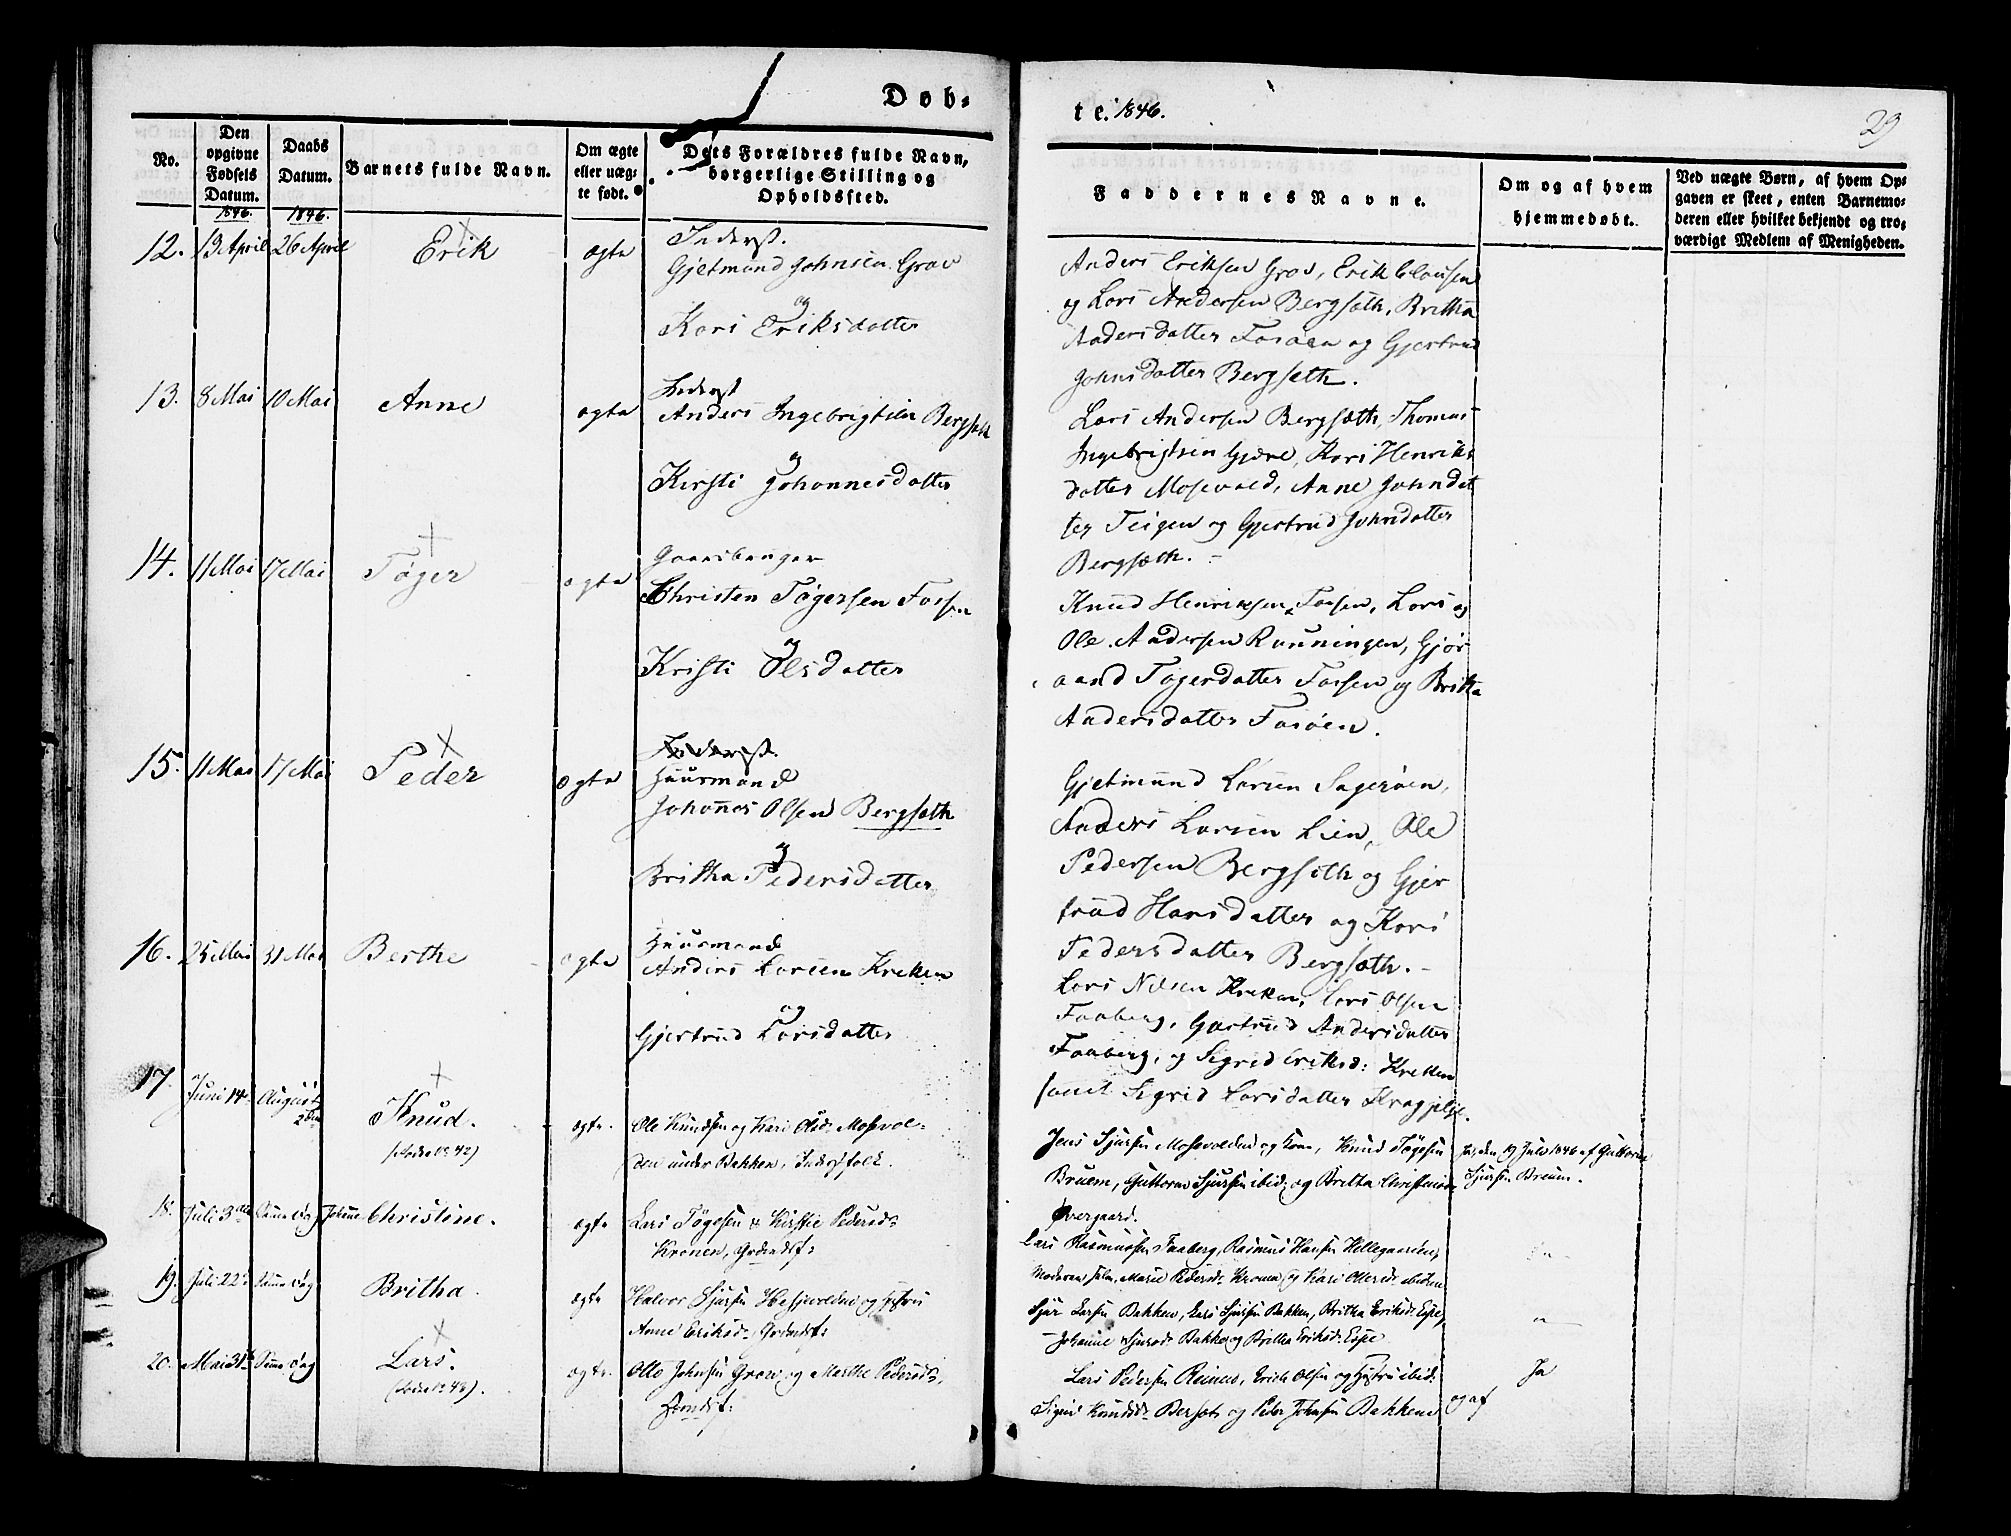 Døb-
te. 1846.
29
No.
Den opgivne Fødsels Datum.
Daabs Datum.
Barnets fulde Navn.
Om ægte eller uægte født.
Dets Forældres fulde Navn, borgerlige Stilling og Opholdssted.
Faddernes Navne.
Om og af hvem hjemmedøbt.
Ved uægte Børn, af hvem Opgaven er skeet, enten Barnemoderen eller hvilket bekjendt og troværdigt Medlem af Menigheden.
1846.
1846.
12. 13 April 26 April Erik ægte
Inderst.
Gjetmund Johnsen Grov
og
Kari Eriksdatter
Anders Eriksen Grov, Erik Clausen
og Lars Andersen Bergsæth, Britha
Andersdatter Fosøen og Gjertrud
Johnsdatter Bergsæth.
13. 8 Mai 10 Mai Anne ægte
Inderst
Anders Ingebrigtsen Bergsæth
og
Kirsti Johannesdatter
Lars Andersen Bergsæth, Thomas
Ingebrigtsen Gjære, Kari Henriks
datter Mosevold, Anne Johndat
ter Teigen og Gjertrud Johndatter
Bergsæth.
14. 11 Mai 17 Mai Tøger ægte
Gaardbruger
Christen Tøgersen Fossen
og
Kristi Olsdatter
Knud Henriksen Fossen, Lars og
Ole Andersen Runningen, Gjør
aand Tøgerdatter Fossen og Britha
Andersdatter Fosøen.
15. 11 Mai 17 Mai Peder ægte
Inderst.
Huusmand
Johannes Olsen Bergsæth
og
Britha Pedersdatter
Gjetmund Larsen Sagerøen,
Anders Larsen Lien, Ole
Pedersen Bergsæth og Gjer
trud Hansdatter og Kari
Pedersdatter Bergsæth.
16. 25 Mai 31 Mai Berthe ægte
Huusmand
Anders Larsen Kreken
og
Gjertrud Larsdatter
Lars Nilsen Kreken, Lars Olsen
Faaberg, Gjertrud Andersdatter
Faaberg, og Sigrid Eriksd: Kreken
samt Sigrid Larsdatter
17. Juni 14 August 2den Knud. ægte.
Ole Knudsen og Kari Olsd: Mosvol-
den under Bakken, Inderstfolk.
Jens Sjursen Mosevolden og Kone, Knud Tøgesen
Bruem, Guttorm Sjursen ibid: og Britha Christensd:
Øvergaard.
Ja, den 19 Juli 1846 af Guttorm
Sjursen Bruem.
18. Juli 3die Samme dag Johanne Christine. ægte
Lars Tøgesen & Kirstie Pedersd:
Kronen, Grdmdsf:
Lars Rasmussen Faaberg, Rasmus Hansen Hellegaarden,
Moderen selv, Marie Pedersd: Kronen og Kari Ottersd: ibidem
19. Juli 22 Samme dag Britha. ægte
Halvor Sjursen Hesjevolden og Hustru
Anne Eriksd:, Grdmdsf:
Sjur Larsen Bakken, Lars Sjursen Bakken, Britha Eriksd: Espe,
Johanne Sjursd: Bakken og Britha Eriksd: Espe
20. Mai 31te Samme dag Lars. ægte.
Otto Johnsen Grov og Marthe Pedersd:,
Lars Pedersen Reinen, Erich Olsen og Hustru ibid:
Sigrid Knudsd: Bersæt og Peder Johnsen Bakken
Ja
og af